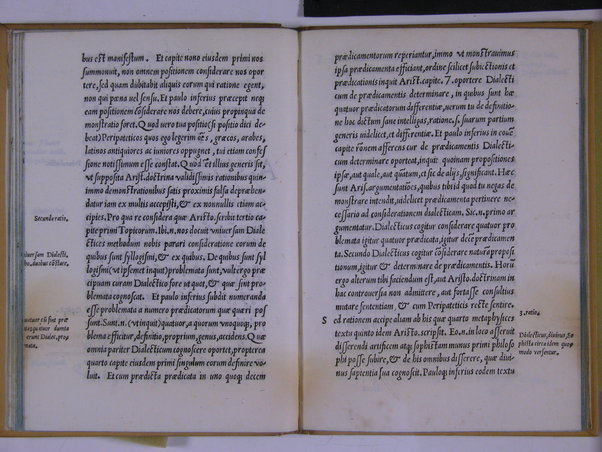 bus est manifestum. Et capite nono eiusdem primi nos
summonuit, non omnem positionem considerare nos opor
tere, sed quam dubitabit aliquis eorum qui ratione egent,
non qui pœna uel sensu. Et paulo inferius præcepit neq;
eam positionem cõsiderare nos debere, cuius propinqua de
monstratio foret. Quod uero tua positio (si positio dici de
beat) Peripateticos quos ego legerim oẽs, græcos, arabes,
latinos antiquiores ac iuniores oppugnet, tu etiam confes
sione notissimum esse constat. Quod et illius generis sit,
ut supposita Arist. doctrina ualidissimis rationibus quin
immo demonstrationibus satis proximis falsa depræben
datur iam ex multis accepisti, & ex nonnullis etiam ac
cipies.
Secunda ratio,
Pro qua re considera quæ Aristo. scribit tertio ca
pite primo Topicorum. Ibi. n. nos docuit uniuersam Diale
cticẽs methodum nobis parari consideratione eorum de
quibus sunt syllogismi, & ex quibus. De quibus sunt syl
logismi (ut ipsemet inquit) problemata sunt, uultergo præ
cipuam curam Dialectico fore ut quat, & quæ sint pro
blemata cognoscat. Et paulo inferius subdit numeranda
esse problemata a numero prædicatorum quæ quæri pos
sunt. Sunt. n. (ut inquit) quatuor, a quorum unoquoq; pro
blema efficitur, definitio, proprium, genus, accidens. Quæ
omnia pariter Dialecticum cognoscere oportet, propterea
quarto capite eiusdem primi singulum eorum definire uo
luit. Et cum prædicta prædicata in uno quoq; decem
prædicamentorum reperiantur, immo ut monstrauimus
ipsa prædicamenta efficiant, ordine scilicet subiectionis et
prædicationis inquit Arist. capite. 7. oportere Dialecti
cum de prædicamentis determinare, in quibus sunt hæ
quatuor prædicatorum differentiæ, uerum tu de definitio-
ne hoc dictum sane intelligas, ratione. s. suarum partium
generis uidelicet, et differentiæ. Et paulo inferius in eoũ
capite rõnem afferens cur de prædicamentis Dialecti-
cum determinare oporteat, inquit quoniam propositiones
ipsæ, aut quale, aut quãtum, et sic de alijs, significant. Hæc
sunt Aris. argumentatiões, quibus tibi id quod tu negas de
monstrare intendit, uidelicet prædicamenta pertinere ne-
cessario ad considerationem dialecticam. Sic. n. primo ar
gumentatur. Dialecticus cogitur considerare quatuor pro
blemata igitur quatuor prædicata, igitur decẽ prædicamen
ta. Secundo Dialecticus cogitur cõsiderare naturã proposi
tionum, igitur & determinare de prædicamentis. Horũ
ergo alterum tibi faciendum est, aut Aristo. doctrinam in
hac controuersia non admittere, aut fortasse consultius
mutare sententiam, & cum Peripateticis recte sentire.
3. ratio.
S ed rationem accipe aliam ab his quæ quarto metaphysices
textu quinto idem Aristo. scripsit. Eo. n. in loco asseruit
Dialecticus, diuinus, So
phista circa idem quo
modo uersentur.
disserendi artificem atq; sophistam munus primi philoso
phi posse subire, & de his omnibus disserere, quæ diui-
nus sapientia sua cognoscit. Pauloq; inferius eodem textu